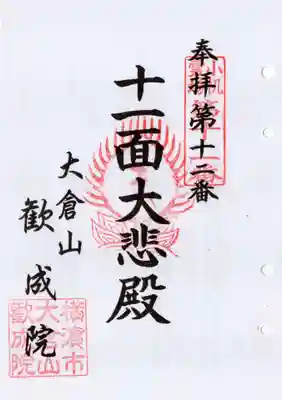 奉拝第十二番
十一面大悲殿
大倉山
歓成院
横濱市
大倉山
歓成院